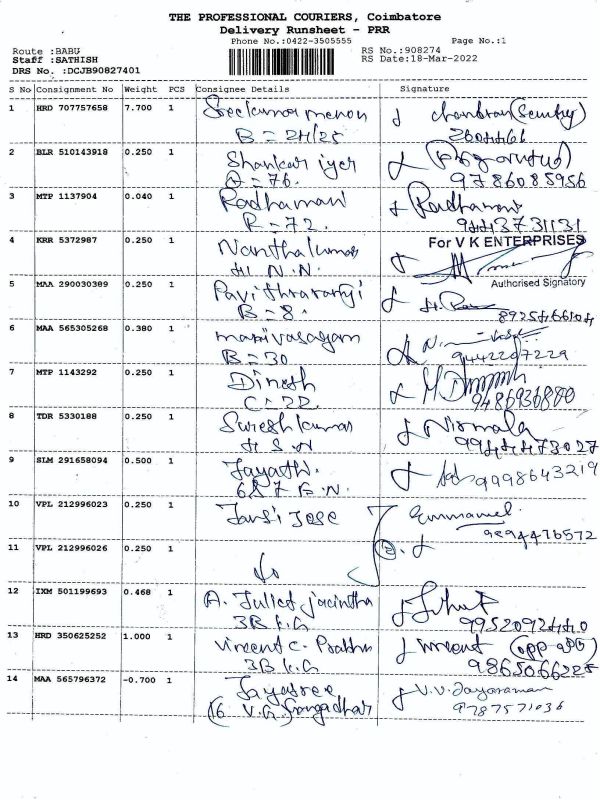 THE PROFESSIONAL COURIERS, Coimbatore
Delivery Runsheet - PRR
Phone No.:0422-3505555 Page No.:1
Route :BABU RS No.:908274
Staff :SATHISH RS Date:18-Mar-2022
DRS No. :DCJB90827401
S No Consignment No Weight PCS Consignee Details Signature
1 HRD 707757658 7.700 1 Sreekumar menon chandran (Security)
B = 24/25
2 BLR 510143918 0.250 1 Shankar iyer
A = 76. 9786085956
3 MTP 1137904 0.040 1 Radhamani Radhamani
R = 72. 9443731131
For V K ENTERPRISES
4 KRR 5372987 0.250 1 Nanthakumar
H N.N.
Authorised Signatory
5 MAA 290030389 0.250 1 Pavithraranji
B = 8.
6 MAA 565305268 0.380 1 manivasagam
B = 30 9442207229
7 MTP 1143292 0.250 1 Dinesh
C = 22. 9486936880
8 TDR 5330188 0.250 1 Sureshkumar Nirmala
H S.N 9944473027
9 SLM 291658094 0.500 1 Jayathi. 9998643219
687 B.N.
10 VPL 212996023 0.250 1 Jansi Jose Emmanuel.
9894476572
11 VPL 212996026 0.250 1
12 IXM 501199693 0.468 1 A. Juliet jacintha
3B K.G 9952092440
13 HRD 350625252 1.000 1 Vincent C. Prabhu Vincent
3B K.G 9865066225
14 MAA 565796372 -0.700 1 Jayasree V.V. Jayaraman
(6 V.G) Gangadhar 9787571036